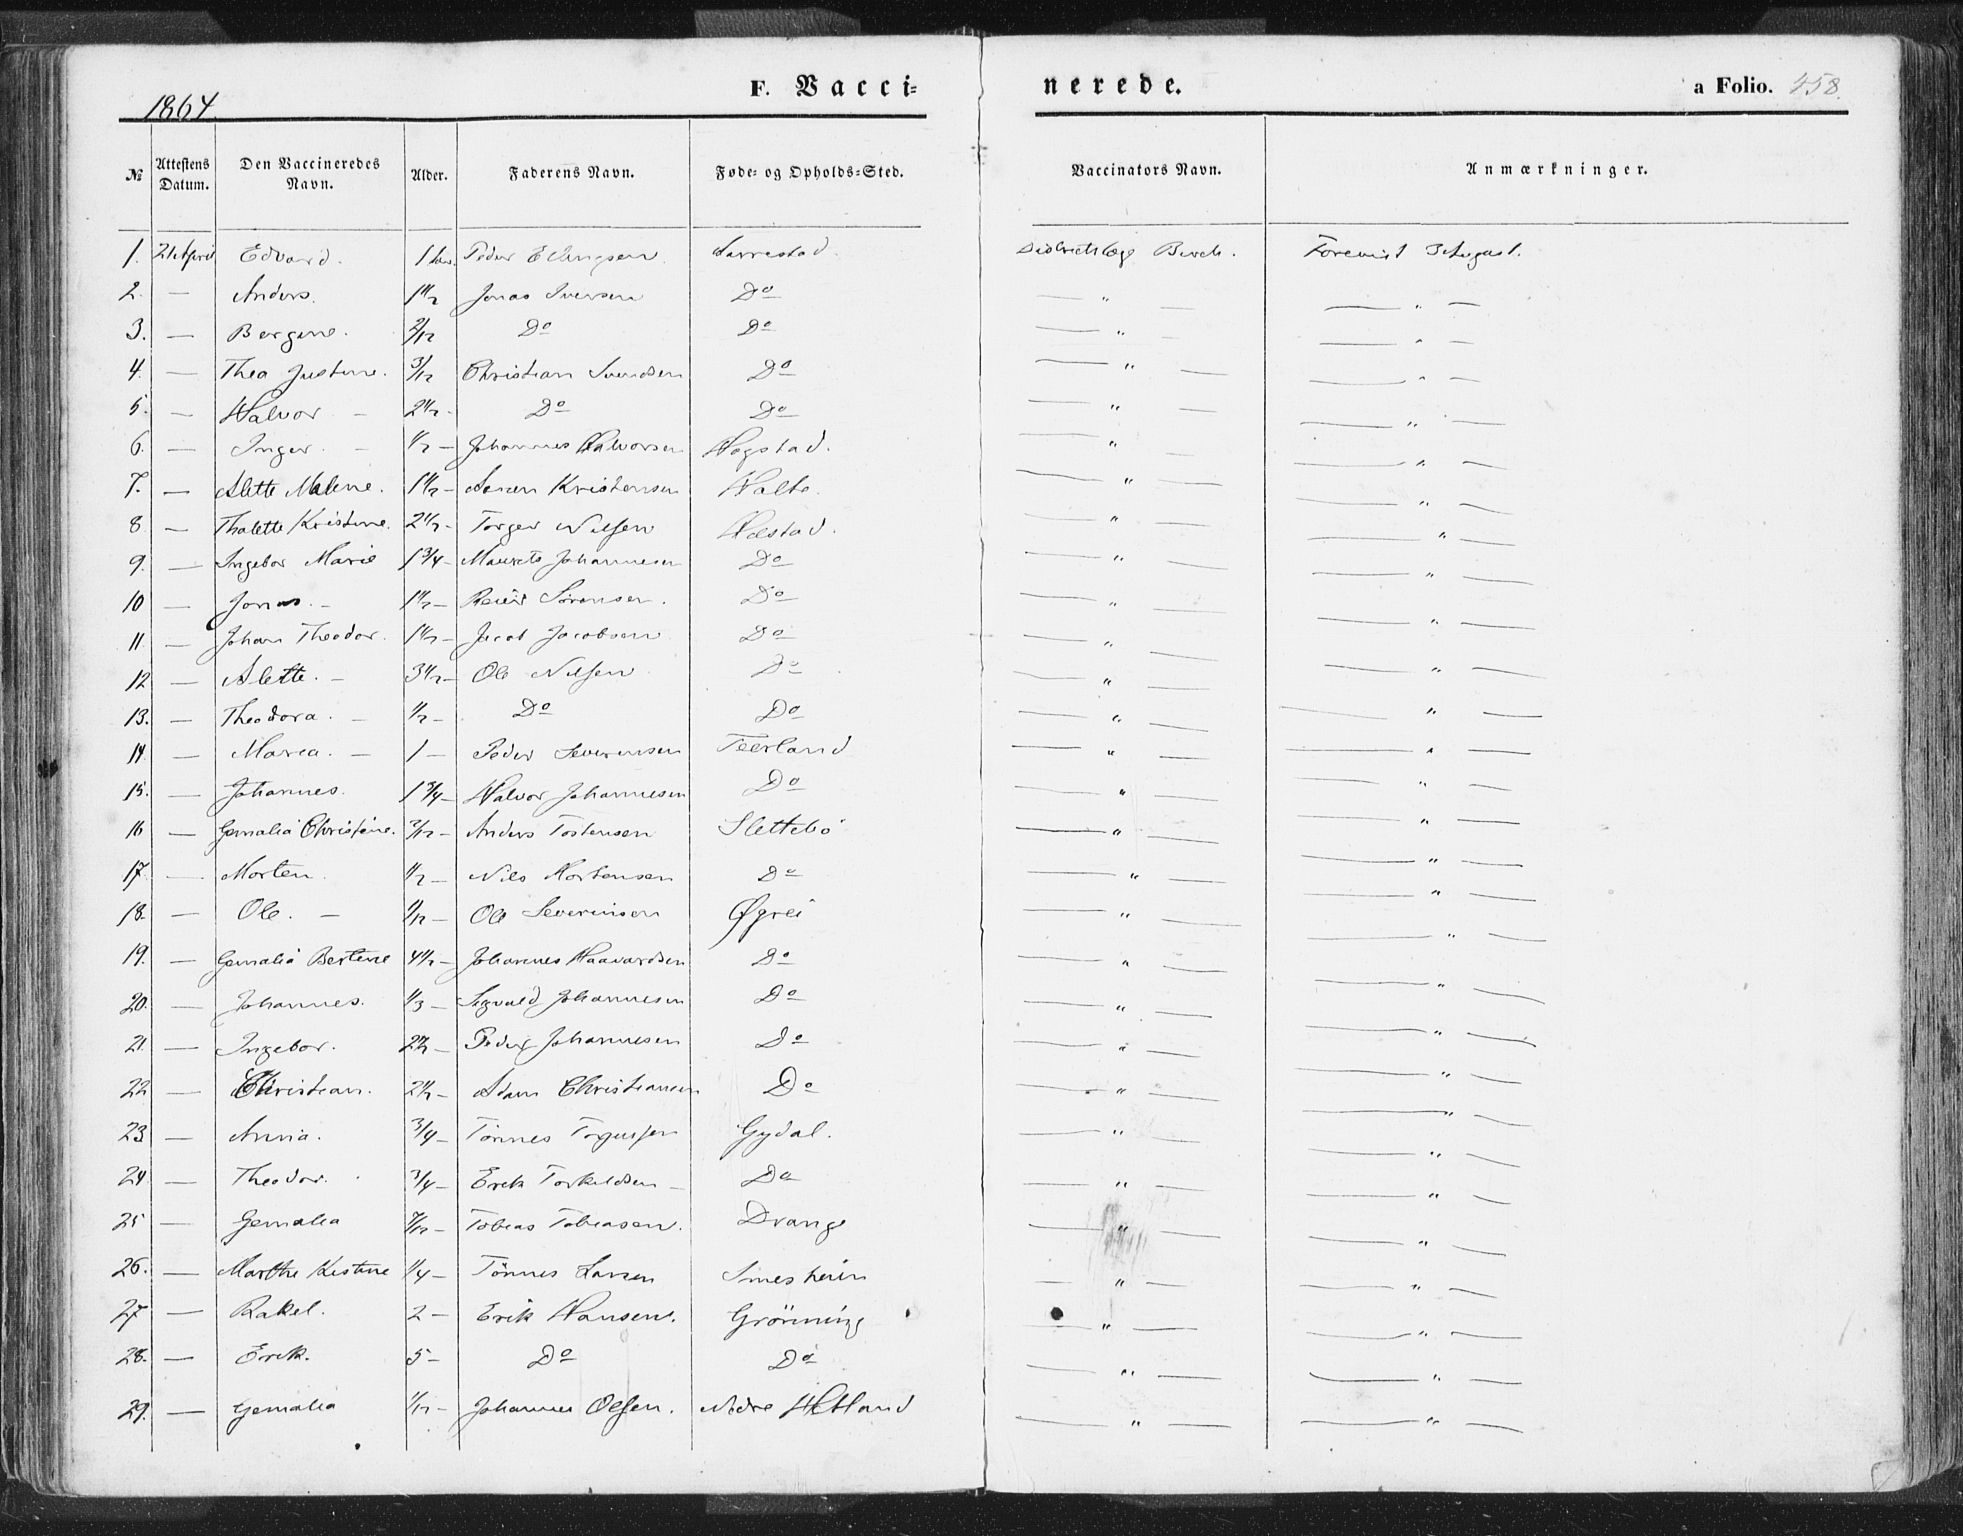 1864 F. Vacci= nerede. a Folio. 458.
№ Attestens Datum. Den Vaccineredes Navn. Alder. Faderens Navn. Føde= og Opholds=Sted. Vaccinators Navn. Anmærkninger.
1. 21 April Edvard. 1 Peder Larrestad. Districtslæge Forevist 3 August.
2. — Anders. 1 1/2 Jonas Iversen Do — " — — " —
3. — Bergine. 2/12 Do Do — " — — " —
4. — Thea Justine. 3/12 Christian Svendsen Do — " — — " —
5. — Halvor — 2 1/2 - Do Do — " — — " —
6. — Inger. — 1/2 — Johannes Halvorsen Hogstad. — " — — " —
7. — Alette Malene. 1 1/2 — Søren Kristensen — " — — " —
8 — Thalette Kristine. 2 1/2 - Torger Nilsen Hæstad. — " — — " —
9. — Ingebor Marie 1 3/4 - Maurits Johannesen Do — " — — " —
10 — Jonas. — 1 1/2 — Reier Sörensen. Do — " — — " —
11. — Johan Theodor. 1 1/2 — Jacob Jacobsen Do — " — — " —
12 — Alette. — 3 1/2 — Ole Nilsen Do — " — — " —
13. — Theodora. — 1/2 — Do Do — " — — " —
14 — Maria. — 1 — Peder Severinsen Teerland — " — — " —
15. — Johannes. 1 3/4 — Halvor Johannesen Do — " — — " —
16 — Gemalia Christine. 2/12 — Anders Tostensen Slettebö — " — — " —
17. — Morten. 1/2 — Nils Mortensen Do — " — — " —
18. — Ole. — /12 — Ole Severinsen Øgrei — " — — " —
19. — Gemalia Bertine 4 1/2 — Johannes Haavardsen Do — " — — " —
20. — Johannes. 1/3 — Sigvald Johannesen Do — " — — " —
21. — Ingebor. 2 1/2 — Peder Johannesen Do — " — — " —
22 — Christian. 2 1/2 — Adam Christiansen Do — " — — " —
23 — Anna. 3/4 — Tönnes Torgersen Gydal. — " — — " —
24 — Theodor. 3/4 — Erik Torkildsen — Do — " — — " —
25 — Gemalia 7/12 — Tobias Tobiasen. Drange — " — — " —
26. — Marthe Kistine 1/4 — Tönnes Larsen — " — — " —
27 — Rakel. 2 — Erik Hansen. Grönning — " — — " —
28. — Erik. 5 — Do Do — " — — " —
29. — Gemalia 1/12 — Johannes Olsen. Nedre Hetland — " — — " —